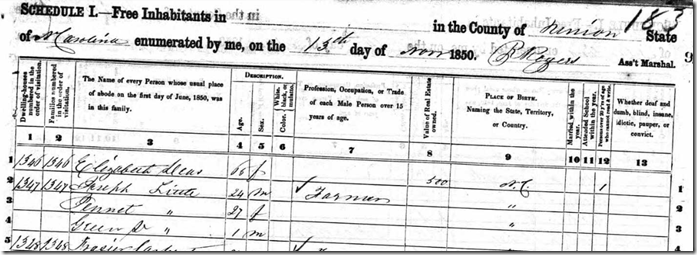 183
SCHEDULE I.—Free Inhabitants in in the County of Union State
of N Carolina enumerated by me, on the 13th day of Nov 1850. B Rogers Ass't Marshal. 9
Dwelling-houses numbered in the order of visitation.
Families numbered in the order of visitation.
The Name of every Person whose usual place of abode on the first day of June, 1850, was in this family.
DESCRIPTION.
Age.
Sex.
White, black, or mulatto. Color
Profession, Occupation, or Trade of each Male Person over 15 years of age.
Value of Real Estate owned.
PLACE OF BIRTH. Naming the State, Territory, or Country.
Married within the year.
Attended School within the year.
Whether deaf and dumb, blind, insane, idiotic, pauper, or convict.
1 2 3 4 5 6 7 8 9 10 11 12 13
1 1346 1346 Elizabeth f 500 N.C. 1 1
2 1347 1347 Joseph 24 m Farmer " 2
3 " 27 f " 3
4 Green " 1 m " 4
5 1348 1348